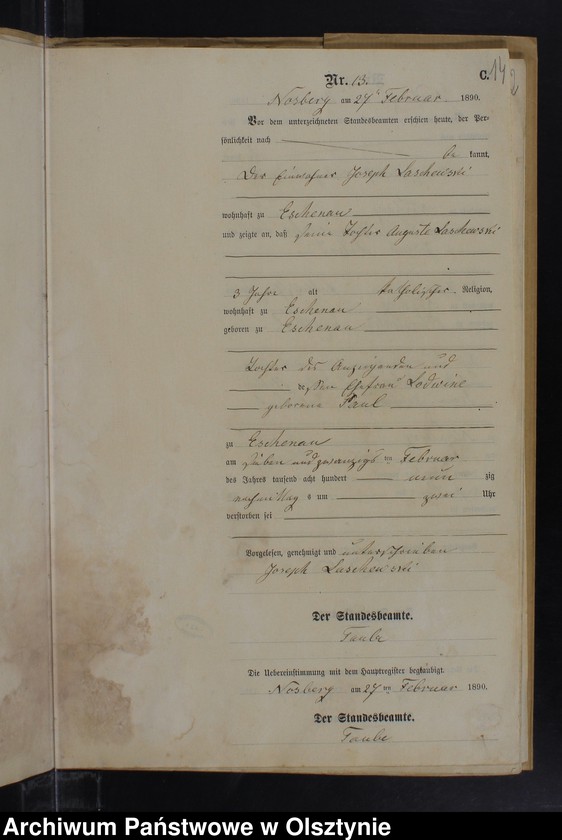 Nr. 13.
C.
14
2
Nosberg am 27 Februar 1890.
Vor dem unterzeichneten Standesbeamten erschien heute, der Per-
sönlichkeit nach
be kannt,
Der Einwohner Joseph Laschewski
wohnhaft zu Eschenau
und zeigte an, daß seine Tochter Auguste Laschewski
3 Jahre alt katholischer Religion,
wohnhaft zu Eschenau
geboren zu Eschenau
Tochter des Anzeigenden und
dessen Ehefrau Lodwine
geborene Paul
zu Eschenau
am sieben und zwanzigs ten Februar
des Jahres tausend acht hundert neun zig
nachmittag s um zwei Uhr
verstorben sei
Vorgelesen, genehmigt und unterschrieben
Joseph Laschewski
Der Standesbeamte.
Taube
Die Uebereinstimmung mit dem Hauptregister beglaubigt.
Nosberg am 27 ten Februar 1890.
Der Standesbeamte.
Taube
Archiwum Państwowe w Olsztynie